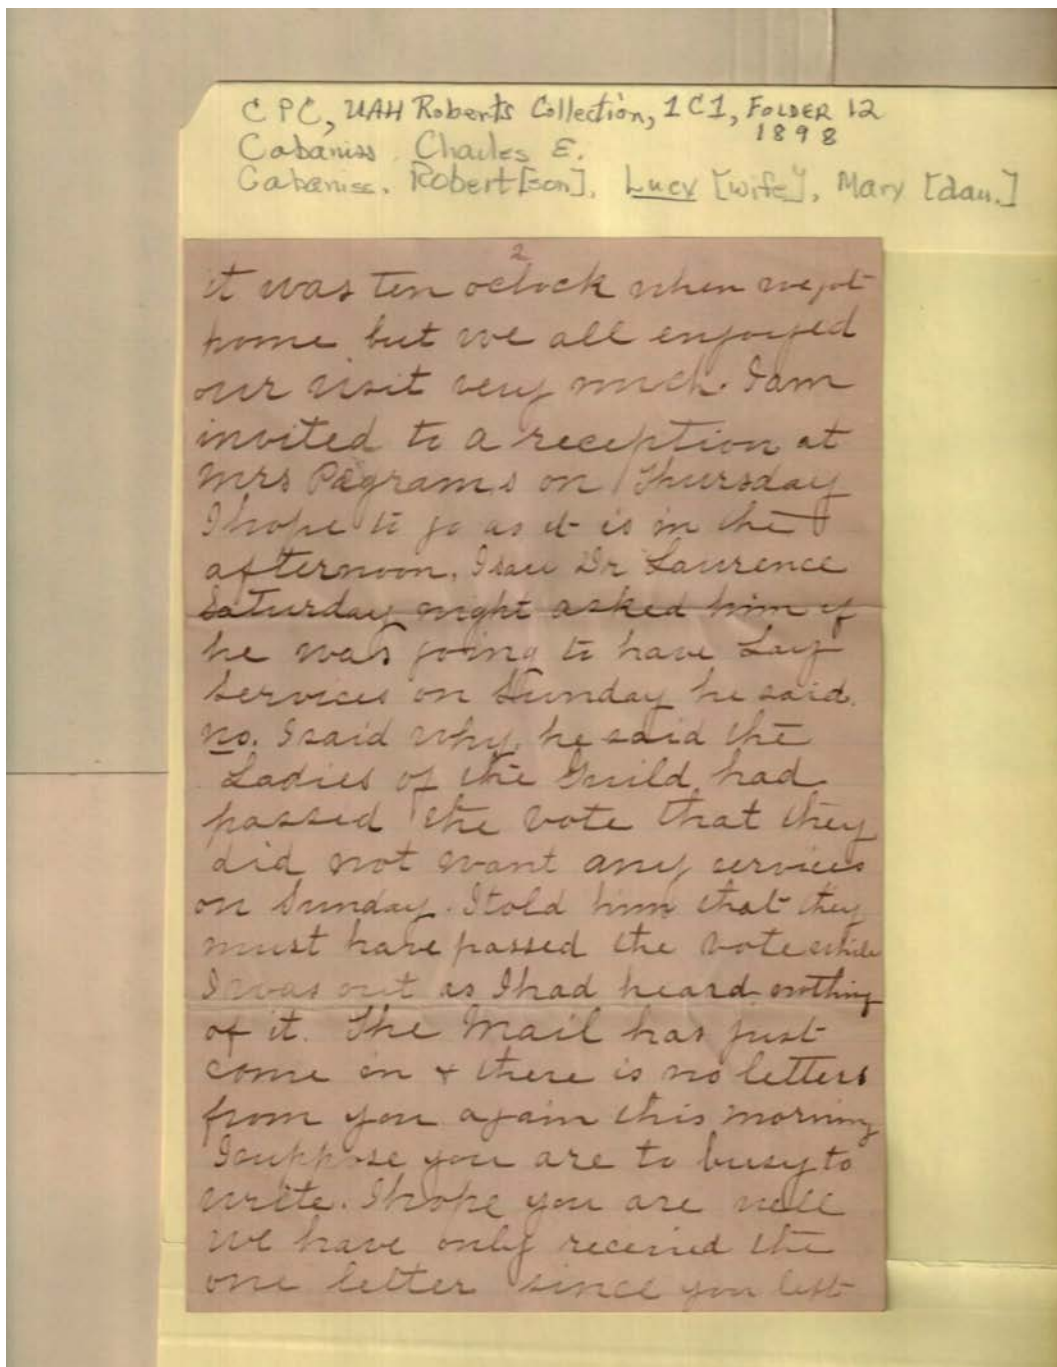 CPC, UAH Roberts Collection, 1C1, FOLDER 12
1898
Cabaniss, Charles E.
Cabaniss, Robert [son], Lucy [wife], Mary [dau.]
2
it was ten oclock when we got
home but we all enjoyed
our visit very much. I am
invited to a reception at
Mrs Pegrams on Thursday
I hope to go as it is in the
afternoon. I saw Dr Laurence
Saturday night asked him if
he was going to have Lay
services on Sunday he said
no. I said why, he said the
Ladies of the Guild had
passed the vote that they
did not want any services
on Sunday. I told him that they
must have passed the vote while
I was out as I had heard nothing
of it. The Mail has just
come in & there is no letters
from you again this morning
I suppose you are to busy to
write. I hope you are well
we have only received the
one letter since you left